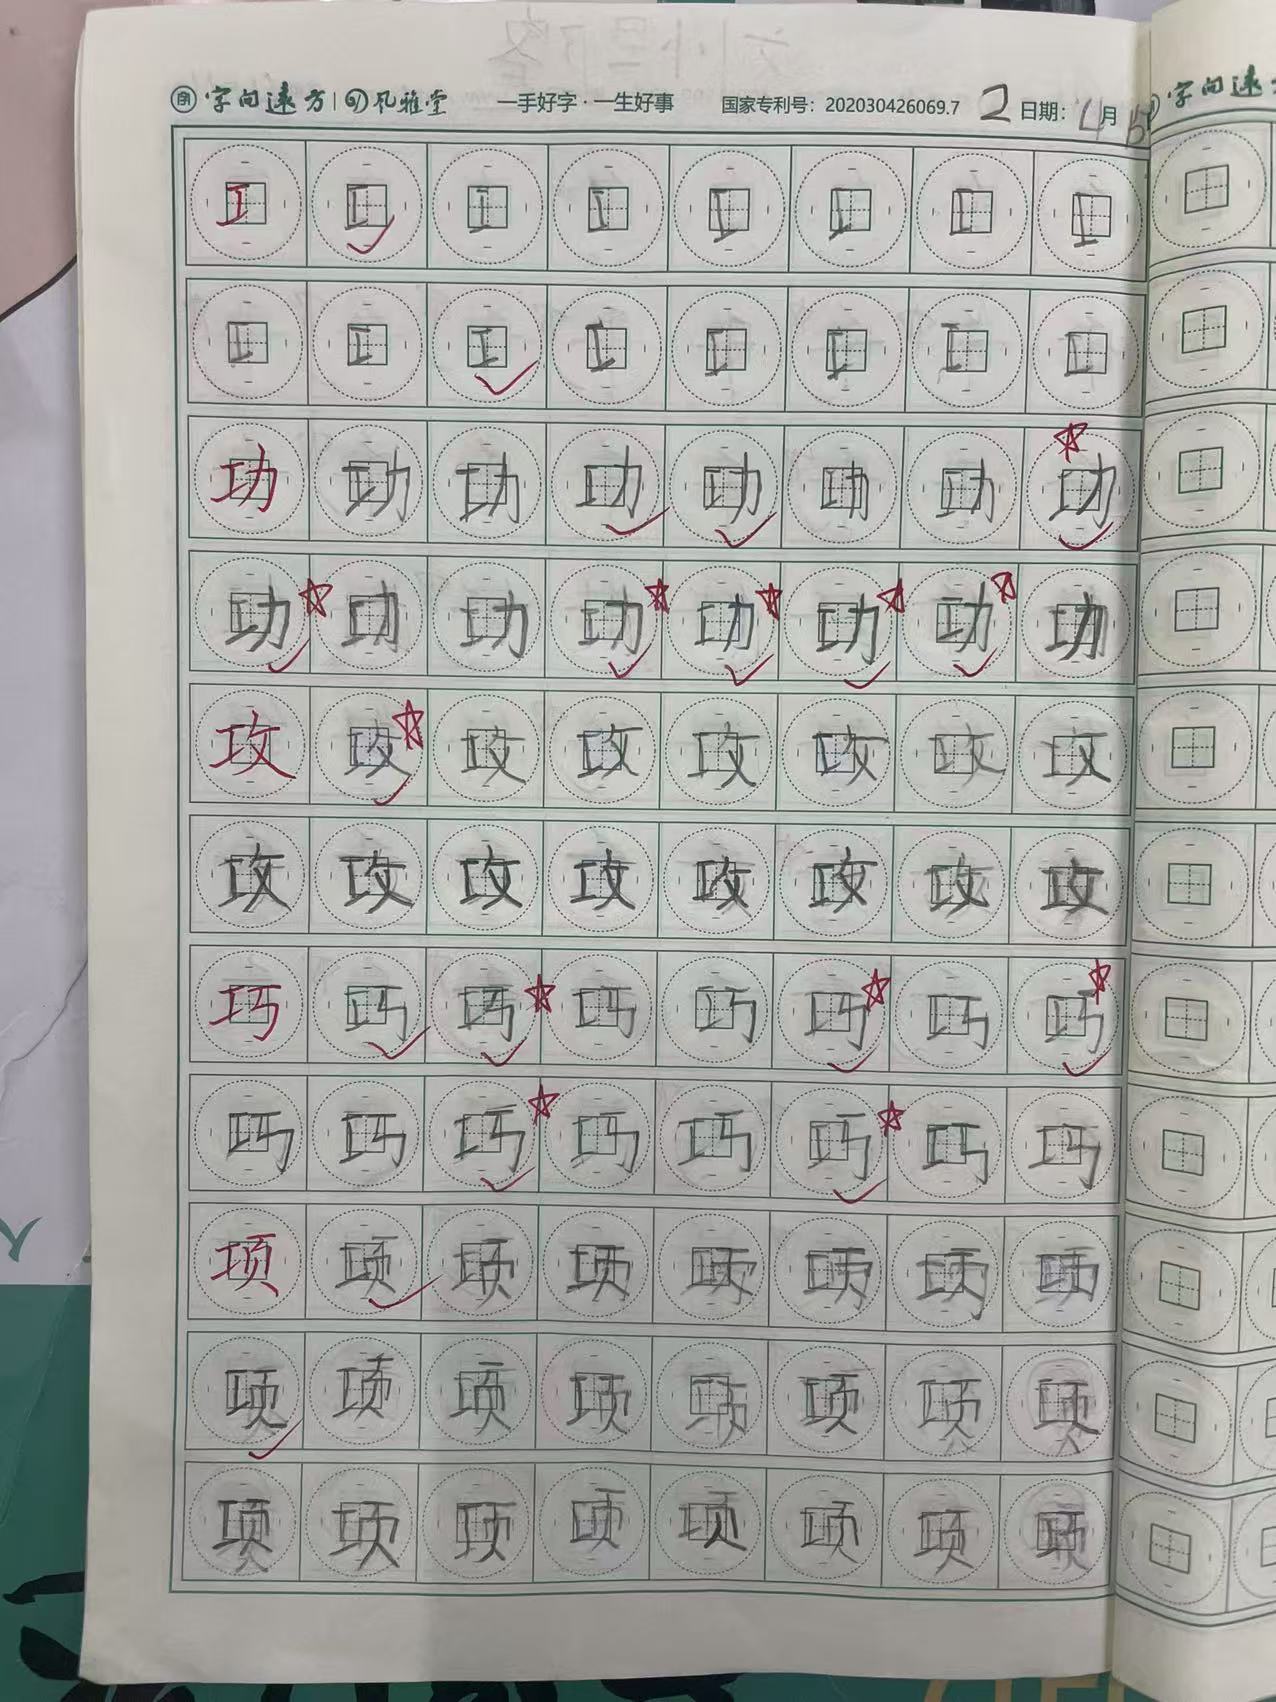 字向远方 风雅堂 一手好字·一生好事 国家专利号：202030426069.7 2 日期：4月15
字向远方
工 工 工 工 工 工 工 工
工 工 工 工 工 工 工 工
功 功 功 功 功 功 功 功
功 功 功 功 功 功 功 功
攻 攻 攻 攻 攻 攻 攻 攻
攻 攻 攻 攻 攻 攻 攻 攻
巧 巧 巧 巧 巧 巧 巧 巧
巧 巧 巧 巧 巧 巧 巧 巧
项 项 项 项 项 项 项 项
项 项 项 项 项 项 项 项
项 项 项 项 项 项 项 项